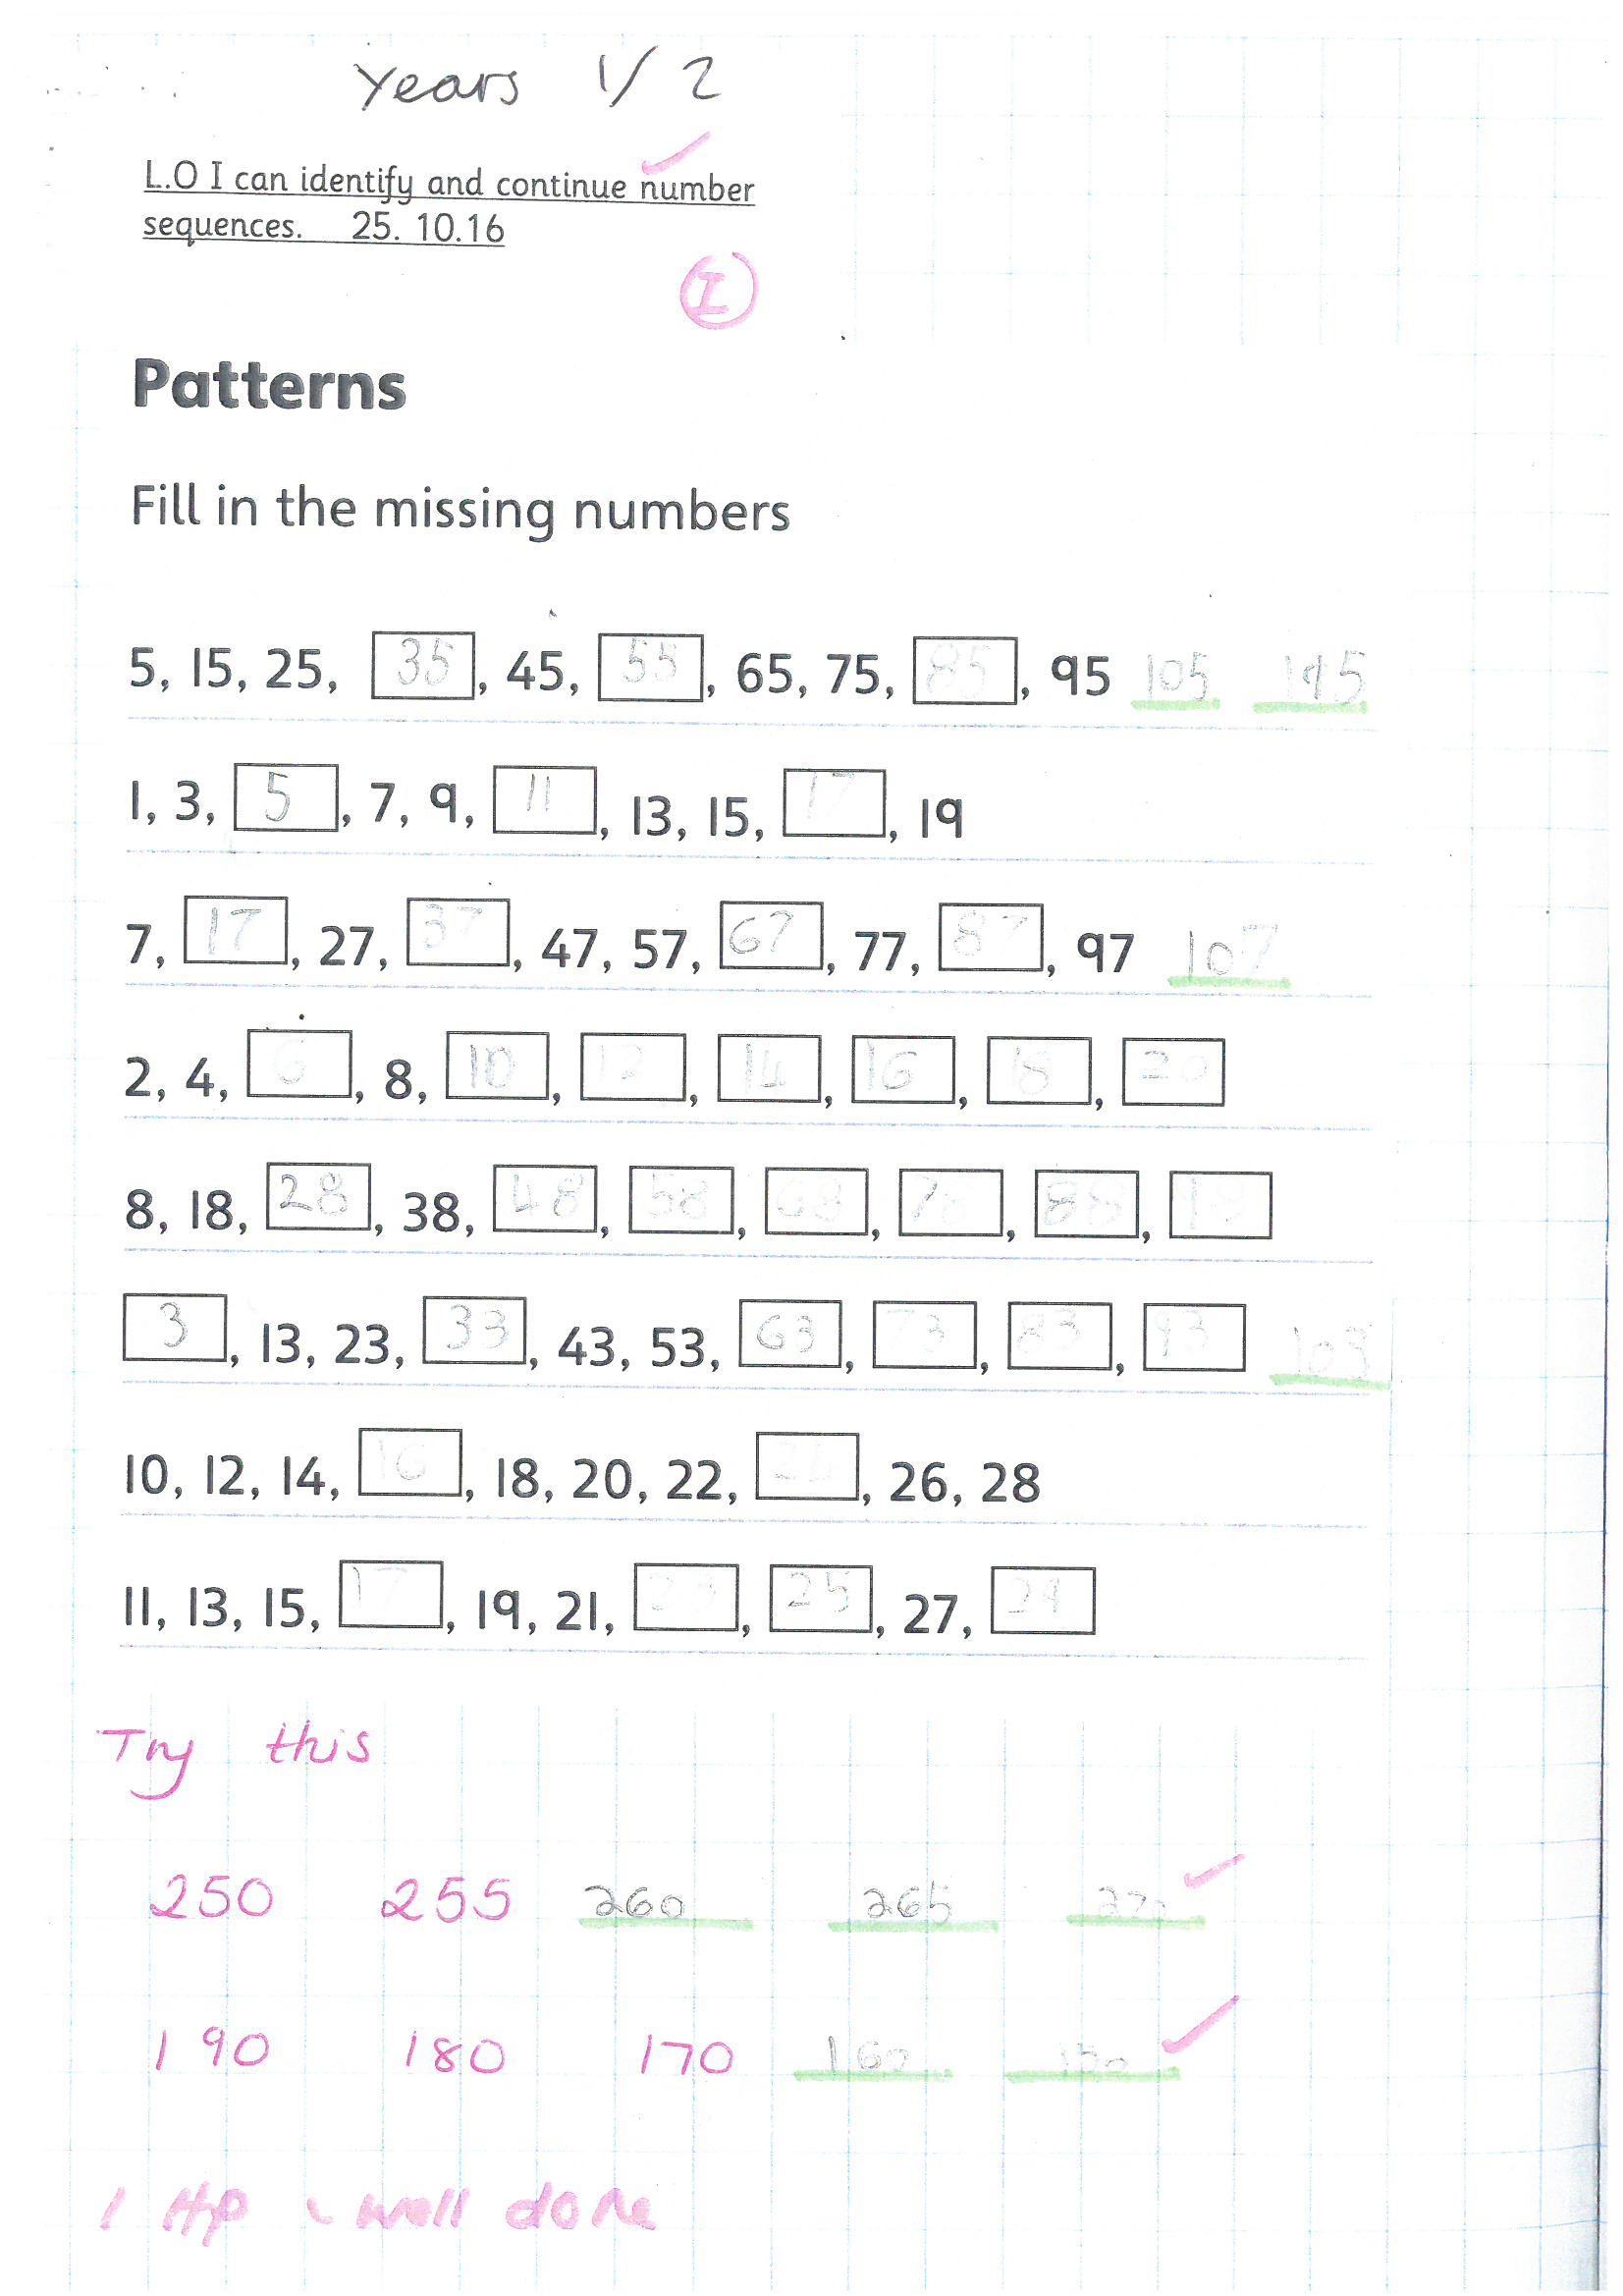 Years 1/2
L.O I can identify and continue number
sequences. 25. 10.16
I
Patterns
Fill in the missing numbers
5, 15, 25, 35, 45, 55, 65, 75, 85, 95 105
1, 3, 5, 7, 9, 11, 13, 15, 17, 19
7, 17, 27, 37, 47, 57, 67, 77, 87, 97 107
2, 4, 6, 8, 10, 12, 14, 16, 18, 20
8, 18, 28, 38, 48, 58, 68, 78, 88,
3, 13, 23, 33, 43, 53, 63, 73, 83, 93 103
10, 12, 14, 16, 18, 20, 22, 24, 26, 28
11, 13, 15, 17, 19, 21, 23, 25, 27, 29
Try this
250 255 260 265 270
190 180 170 160 150
1 HP well done